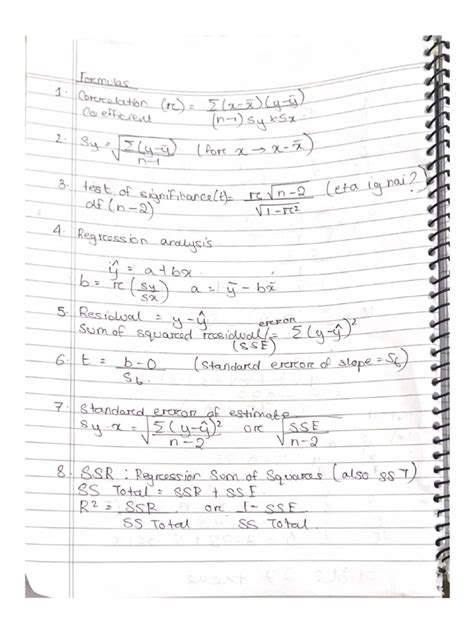 Formulas
1. Correlation (r) = Σ(x-x̄)(y-ȳ)
Coefficient (n-1) Sy × Sx
2. Sy = √(Σ(y-ȳ) / n-1) (for x → x-x̄)
3. test of significance(t) = r√n-2 / √1-r² (eta ig nai?)
df(n-2)
4. Regression analysis
ŷ = a+bx
b = r(sy/sx) a = ȳ - bx̄
5. Residual = y-ŷ
Sum of squared residual/error = Σ(y-ŷ)²
(SSE)
6. t = b-0 / Sb (Standard error of slope = Sb)
7. Standard error of estimate
Sy.x = √(Σ(y-ŷ)² / n-2) or √(SSE / n-2)
8. SSR : Regression Sum of Squares (also SST)
SS Total = SSR + SSE
R² = SSR / SS Total or 1-SSE / SS Total